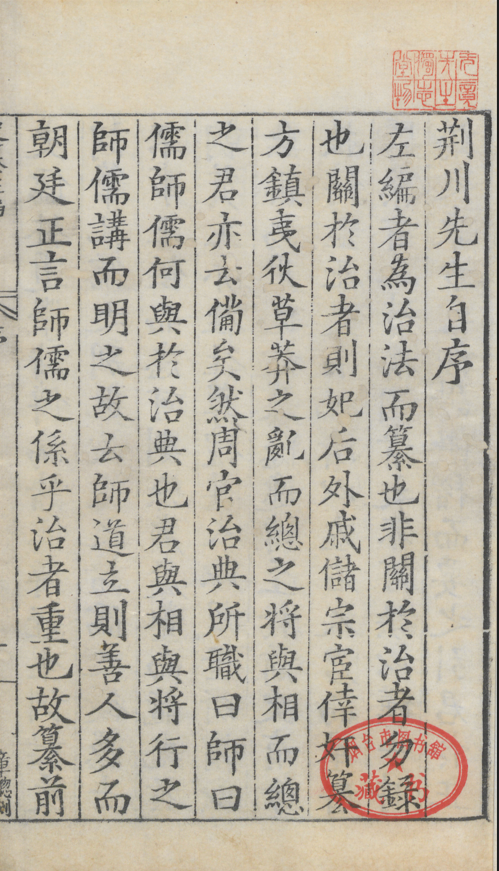 荆川先生自序
左編者為治法而纂也非關於治者勿録
也關於治者則妃后外戚儲宗宦倖奸篡
方鎮夷狄草莽之亂而總之將與相而總
之君亦云備矣然周官治典所職曰師曰
儒師儒何與於治典也君與相與將行之
師儒講而明之故云師道立則善人多而
朝廷正言師儒之係乎治者重也故纂前
烟台市图书館
藏书